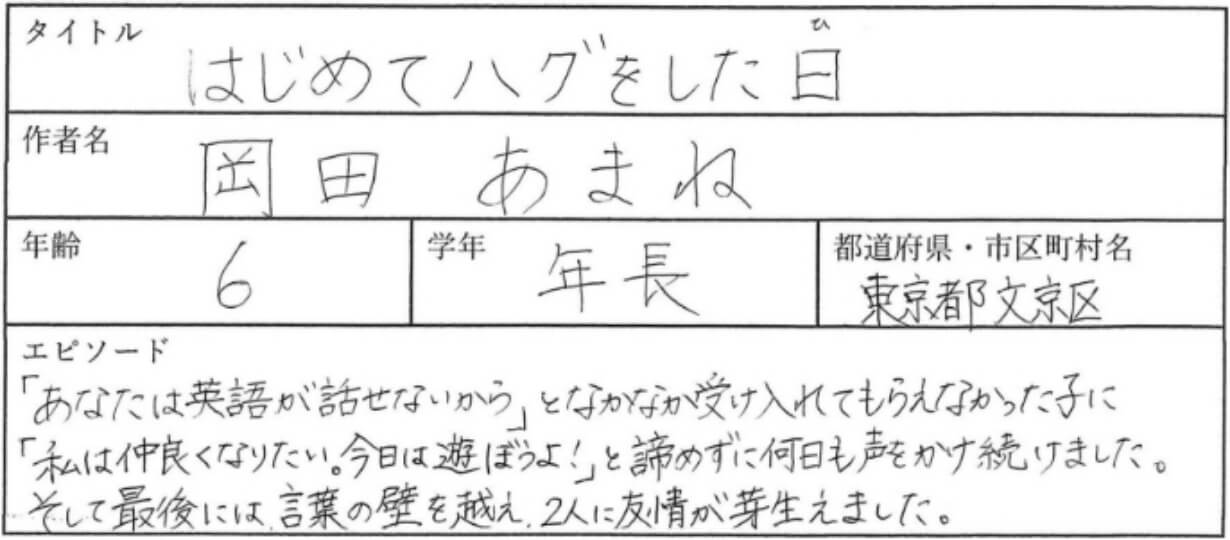 タイトル
ひ
はじめてハグをした日
作者名
岡田 あまね
年齢
6
学年
年長
都道府県・市区町村名
東京都文京区
エピソード
「あなたは英語が話せないから」となかなか受け入れてもらえなかった子に
「私は仲良くなりたい。今日は遊ぼうよ!」と諦めずに何日も声をかけ続けました。
そして最後には言葉の壁を越え、2人に友情が芽生えました。